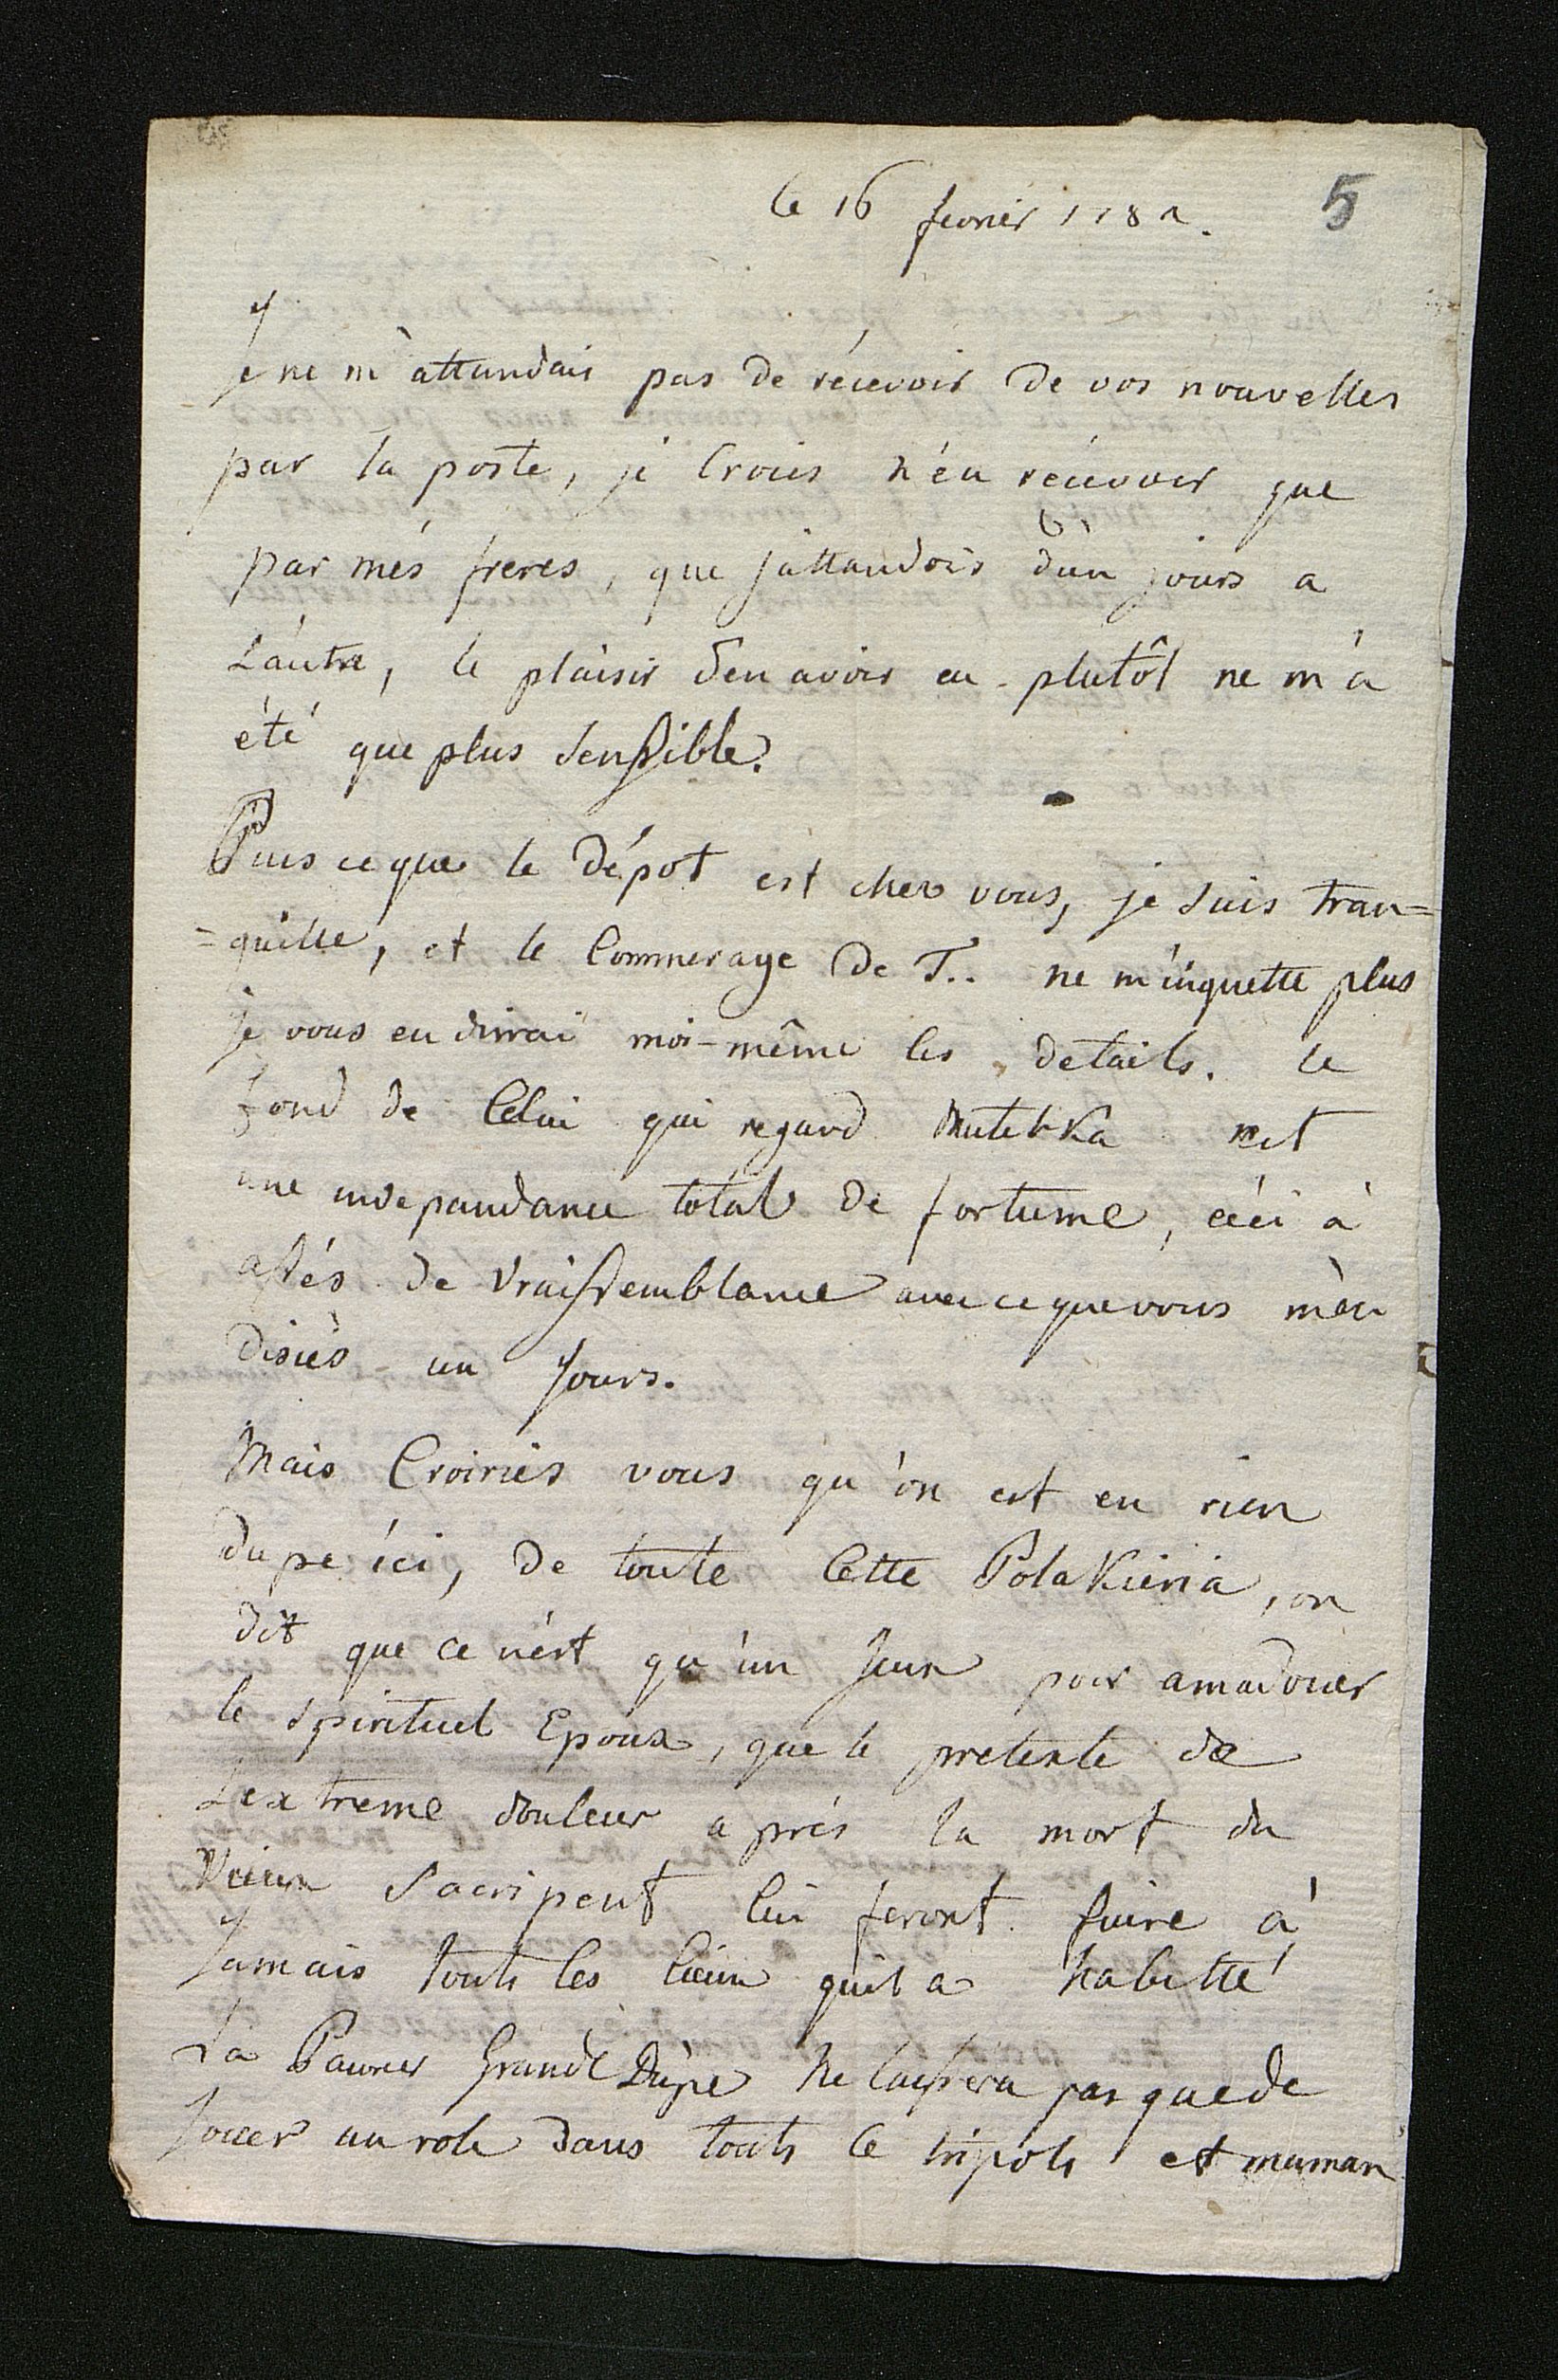 le 16 fevrier 1782. 5
Je ne m'attandais pas de récevoir de vos nouvelles
par la poste, je Crois n'en récevoir que
par més freres, que j'attandois d'un jours a
L'autre, le plaisir d'en avoir eu plutôt ne m'a
été que plus senssible.
Puis ce que le dépot est chez vous, je suis tran=
=quille, et le Commerage de T.. ne m'inquette plus
je vous en dirrai moi-même les details. le
fond de Celui qui regard est
une indepandance total de fortune, ceci à
assés de Vraissemblance avec ce que vous m'en
disiès un Jours.
Mais Croiriés vous qu'on est en rien
dupe ici, de toute Cette Polakieria, on
dit que ce n'est qu'un Jeux pour amadouer
le spirituel Epoux, que le pretexte de
L'extreme douleur après la mort du
Vieux Sacripent lui feront fuire à
Jamais touts les lieux qu'il a habitté
La Pauvre Grande Dùpe ne laissera pas que de
Jouer un role dans touts ce tripots et maman